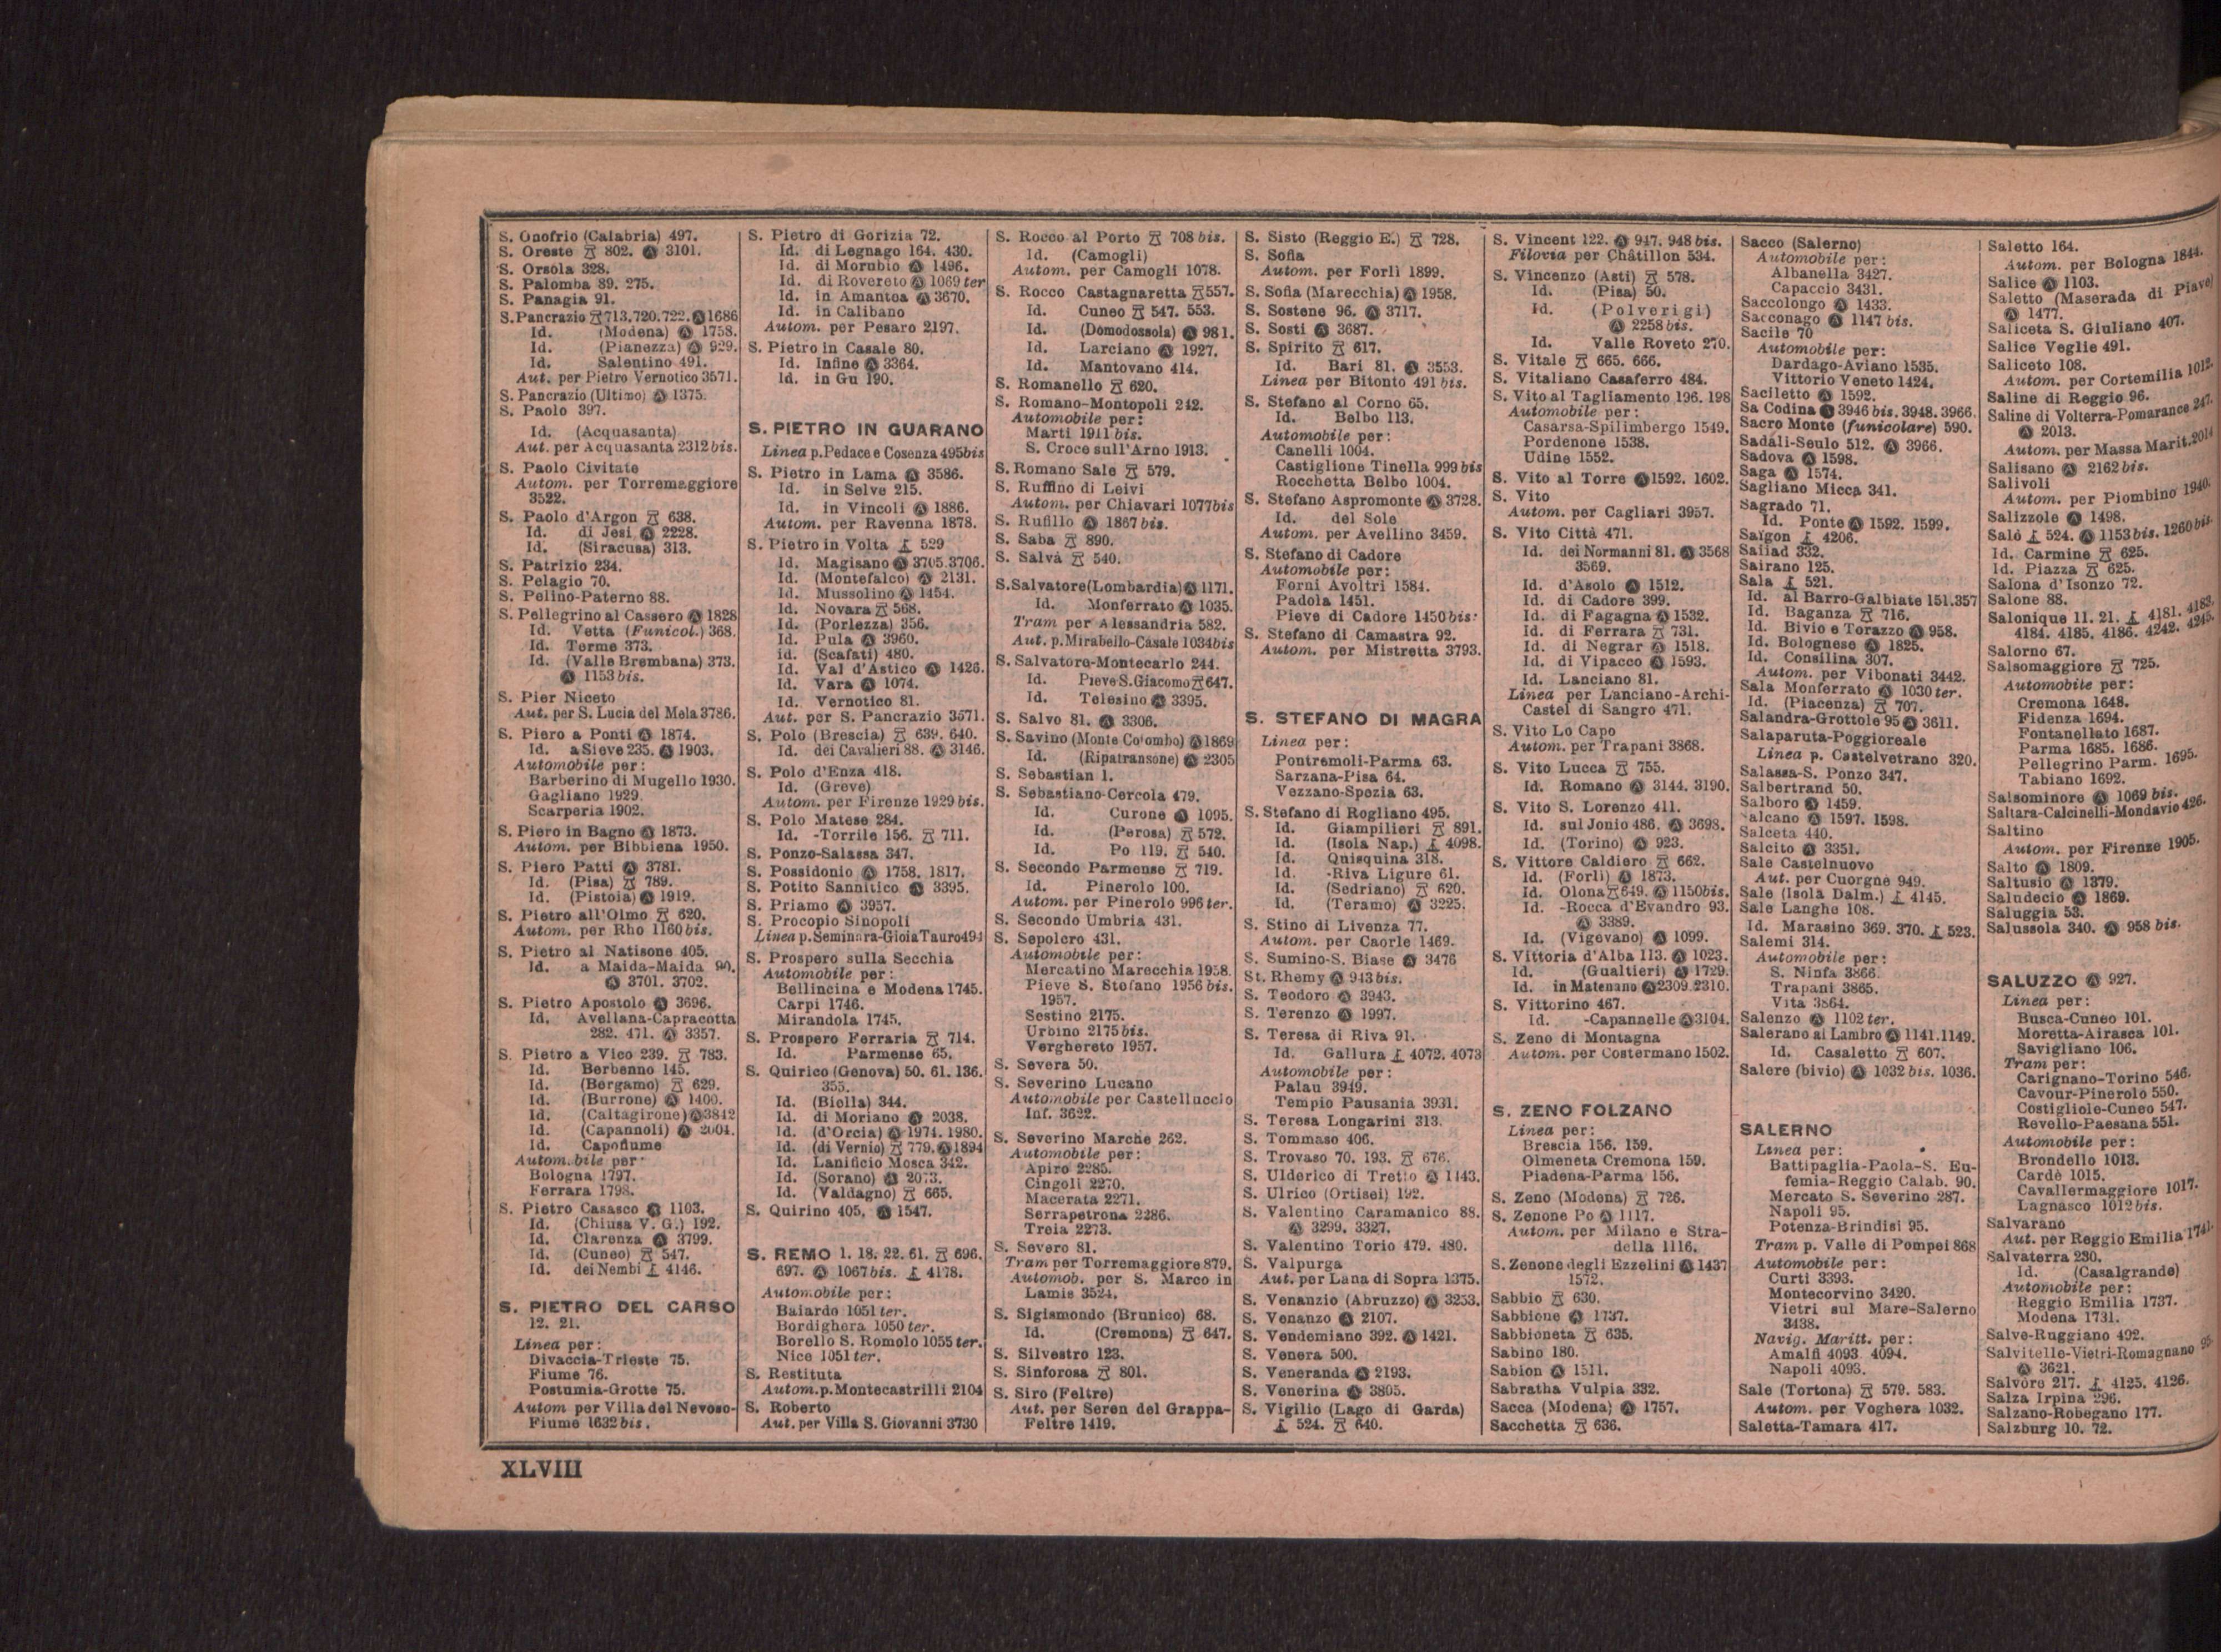 S. Onofrio (Calabria) 497.
S. Oreste 802. 3101.
S. Orsola 328.
S. Palomba 89. 275.
S. Panagia 91.
S. Pancrazio 713. 720. 722. 1686
Id. (Modena) 1758.
Id. (Pianezza) 929.
Id. Salentino 491.
Aut. per Pietro Vernotico 3571.
S. Pancrazio (Ultimo) 1375.
S. Paolo 397.
Id. (Acquasanta)
Aut. per Acquasanta 2312 bis.
S. Paolo Civitate
Autom. per Torremaggiore
3522.
S. Paolo d'Argon 638.
Id. di Jesi 2228.
Id. (Siracusa) 313.
S. Patrizio 234.
S. Pelagio 70.
S. Pelino-Paterno 88.
S. Pellegrino al Cassero 1828
Id. Vetta (Funicol.) 368.
Id. Terme 373.
Id. (Valle Brembana) 373.
1153 bis.
S. Pier Niceto
Aut. per S. Lucia del Mela 3786.
S. Piero a Ponti 1874.
Id. a Sieve 235. 1903.
Automobile per:
Barberino di Mugello 1930.
Gagliano 1929.
Scarperia 1902.
S. Piero in Bagno 1873.
Autom. per Bibbiena 1950.
S. Piero Patti 3781.
Id. (Pisa) 789.
Id. (Pistoia) 1919.
S. Pietro all'Olmo 620.
Autom. per Rho 1160 bis.
S. Pietro al Natisone 405.
Id. a Maida-Maida 90.
3701. 3702.
S. Pietro Apostolo 3696.
Id. Avellana-Capracotta
282. 471. 3357.
S. Pietro a Vico 239. 783.
Id. Berbenno 145.
Id. (Bergamo) 629.
Id. (Burrone) 1400.
Id. (Caltagirone) 3842
Id. (Capannoli) 2004.
Id. Capofiume
Automobile per
Bologna 1797.
Ferrara 1798.
S. Pietro Casasco 1103.
Id. (Chiusa V. G.) 192.
Id. Clarenza 3799.
Id. (Cuneo) 547.
Id. dei Nembi 4146.
S. PIETRO DEL CARSO
12. 21.
Linea per:
Divaccia-Trieste 75.
Fiume 76.
Postumia-Grotte 75.
Autom per Villa del Nevoso-
Fiume 1632 bis.
S. Pietro di Gorizia 72.
Id. di Legnago 164. 430.
Id. di Morubio 1496.
Id. di Rovereto 1069 ter
Id. in Amantea 3670.
Id. in Calibano
Autom. per Pesaro 2197.
S. Pietro in Casale 80.
Id. Infine 3364.
Id. in Gu 190.
S. PIETRO IN GUARANO
Linea p. Pedace e Cosenza 495 bis
S. Pietro in Lama 3586.
Id. in Selve 215.
Id. in Vincoli 1886.
Autom. per Ravenna 1878.
S. Pietro in Volta 529
Id. Magisano 3705. 3706.
Id. (Montefalco) 2131.
Id. Mussolino 1454.
Id. Novara 568.
Id. (Porlezza) 356.
Id. Pula 3960.
id. (Scafati) 480.
Id. Val d'Astico 1426.
Id. Vara 1074.
Id. Vernotico 81.
Aut. per S. Pancrazio 3571.
S. Polo (Brescia) 639. 640.
Id. dei Cavalieri 88. 3146.
S. Polo d'Enza 418.
Id. (Greve)
Autom. per Firenze 1929 bis.
S. Polo Matese 284.
Id. -Torrile 156. 711.
S. Ponzo-Salassa 347.
S. Possidonio 1758. 1817.
S. Potito Sannitico 3395.
S. Priamo 3957.
S. Procopio Sinopoli
Linea p. Seminara-Gioia Tauro 494
S. Prospero sulla Secchia
Automobile per:
Bellincina e Modena 1745.
Carpi 1746.
Mirandola 1745.
S. Prospero Ferraria 714.
Id. Parmense 65.
S. Quirico (Genova) 50. 61. 136.
355.
Id. (Biella) 344.
Id. di Moriano 2038.
Id. (d'Orcia) 1974. 1980.
Id. (di Vernio) 779. 1894
Id. Lanificio Mosca 342.
Id. (Sorano) 2073.
Id. (Valdagno) 665.
S. Quirino 405. 1547.
S. REMO 1. 18. 22. 61. 696.
697. 1067 bis. 4178.
Automobile per:
Baiardo 1051 ter.
Bordighera 1050 ter.
Borello S. Romolo 1055 ter.
Nice 1051 ter.
S. Restituta
Autom. p. Montecastrilli 2104
S. Roberto
Aut. per Villa S. Giovanni 3730
S. Rocco al Porto 708 bis.
Id. (Camogli)
Autom. per Camogli 1078.
S. Rocco Castagnaretta 557.
Id. Cuneo 547. 553.
Id. (Domodossola) 981.
Id. Larciano 1927.
Id. Mantovano 414.
S. Romanello 620.
S. Romano-Montopoli 242.
Automobile per:
Marti 1911 bis.
S. Croce sull'Arno 1913.
S. Romano Sale 579.
S. Ruffino di Leivi
Autom. per Chiavari 1077 bis
S. Rufillo 1867 bis.
S. Saba 890.
S. Salvà 540.
S. Salvatore (Lombardia) 1171.
Id. Monferrato 1035.
Tram per Alessandria 582.
Aut. p. Mirabello-Casale 1034 bis
S. Salvatore-Montecarlo 244.
Id. Pieve S. Giacomo 647.
Id. Telesino 3395.
S. Salvo 81. 3306.
S. Savino (Monte Colombo) 1869
Id. (Ripatransone) 2305
S. Sebastian 1.
S. Sebastiano-Cercola 479.
Id. Curone 1095.
Id. (Perosa) 572.
Id. Po 119. 540.
S. Secondo Parmense 719.
Id. Pinerolo 100.
Autom. per Pinerolo 996 ter.
S. Secondo Umbria 431.
S. Sepolcro 431.
Automobile per:
Mercatino Marecchia 1958.
Pieve S. Stefano 1956 bis.
1957.
Sestino 2175.
Urbino 2175 bis.
Verghereto 1957.
S. Severa 50.
S. Severino Lucano
Automobile per Castelluccio
Inf. 3622.
S. Severino Marche 262.
Automobile per:
Apiro 2285.
Cingoli 2270.
Macerata 2271.
Serrapetrona 2286.
Treia 2273.
S. Severo 81.
Tram per Torremaggiore 879.
Automob. per S. Marco in
Lamis 3524.
S. Sigismondo (Brunico) 68.
Id. (Cremona) 647.
S. Silvestro 123.
S. Sinforosa 801.
S. Siro (Feltre)
Aut. per Seren del Grappa-
Feltre 1419.
S. Sisto (Reggio E.) 728.
S. Sofia
Autom. per Forlì 1899.
S. Sofia (Marecchia) 1958.
S. Sostene 96. 3717.
S. Sosti 3687.
S. Spirito 617.
Id. Bari 81. 3553.
Linea per Bitonto 491 bis.
S. Stefano al Corno 65.
Id. Belbo 113.
Automobile per:
Canelli 1004.
Castiglione Tinella 999 bis
Rocchetta Belbo 1004.
S. Stefano Aspromonte 3728.
Id. del Sole
Autom. per Avellino 3459.
S. Stefano di Cadore
Automobile per:
Forni Avoltri 1584.
Padola 1451.
Pieve di Cadore 1450 bis.
S. Stefano di Camastra 92.
Autom. per Mistretta 3793.
S. STEFANO DI MAGRA
Linea per:
Pontremoli-Parma 63.
Sarzana-Pisa 64.
Vezzano-Spezia 63.
S. Stefano di Rogliano 495.
Id. Giampilieri 891.
Id. (Isola Nap.) 4098.
Id. Quisquina 318.
Id. -Riva Ligure 61.
Id. (Sedriano) 620.
Id. (Teramo) 3225.
S. Stino di Livenza 77.
Autom. per Caorle 1469.
S. Sumino-S. Biase 3476
St. Rhemy 943 bis.
S. Teodoro 3943.
S. Terenzo 1997.
S. Teresa di Riva 91.
Id. Gallura 4072. 4073
Automobile per:
Palau 3949.
Tempio Pausania 3931.
S. Teresa Longarini 313.
S. Tommaso 406.
S. Trovaso 70. 193. 676.
S. Ulderico di Tretto 1443.
S. Ulrico (Ortisei) 192.
S. Valentino Caramanico 88.
3299. 3327.
S. Valentino Torio 479. 480.
S. Valpurga
Aut. per Lana di Sopra 1375.
S. Venanzio (Abruzzo) 3253.
S. Venanzo 2107.
S. Vendemiano 392. 1421.
S. Venera 500.
S. Veneranda 2193.
S. Venerina 3805.
S. Vigilio (Lago di Garda)
524. 640.
S. Vincent 122. 947. 948 bis.
Filovia per Châtillon 534.
S. Vincenzo (Asti) 578.
Id. (Pisa) 50.
Id. (Polverigi)
2258 bis.
Id. Valle Roveto 270.
S. Vitale 665. 666.
S. Vitaliano Casaferro 484.
S. Vito al Tagliamento 196. 198
Automobile per:
Casarsa-Spilimbergo 1549.
Pordenone 1538.
Udine 1552.
S. Vito al Torre 1592. 1602.
S. Vito
Autom. per Cagliari 3957.
S. Vito Città 471.
Id. dei Normanni 81. 3568
3569.
Id. d'Asolo 1512.
Id. di Cadore 399.
Id. di Fagagna 1532.
Id. di Ferrara 731.
Id. di Negrar 1518.
Id. di Vipacco 1593.
Id. Lanciano 81.
Linea per Lanciano-Archi-
Castel di Sangro 471.
S. Vito Lo Capo
Autom. per Trapani 3868.
S. Vito Lucca 755.
Id. Romano 3144. 3190.
S. Vito S. Lorenzo 411.
Id. sul Jonio 486. 3698.
Id. (Torino) 923.
S. Vittore Caldiero 662.
Id. (Forlì) 1873.
Id. Olona 649. 1150 bis.
Id. -Rocca d'Evandro 93.
3389.
Id. (Vigevano) 1099.
S. Vittoria d'Alba 113. 1023.
Id. (Gualtieri) 1729.
Id. in Matenano 2309. 2310.
S. Vittorino 467.
Id. -Capannelle 3104.
S. Zeno di Montagna
Autom. per Costermano 1502.
S. ZENO FOLZANO
Linea per:
Brescia 156. 159.
Olmeneta Cremona 159.
Piadena-Parma 156.
S. Zeno (Modena) 726.
S. Zenone Po 1117.
Autom. per Milano e Stra-
della 1116.
S. Zenone degli Ezzelini 1437
1572.
Sabbio 630.
Sabbione 1737.
Sabbioneta 635.
Sabino 180.
Sabion 1511.
Sabratha Vulpia 332.
Sacca (Modena) 1757.
Sacchetta 636.
Sacco (Salerno)
Automobile per:
Albanella 3427.
Capaccio 3431.
Saccolongo 1433.
Sacconago 1147 bis.
Sacile 70
Automobile per:
Dardago-Aviano 1535.
Vittorio Veneto 1424.
Saciletto 1592.
Sa Codina 3946 bis. 3948. 3966.
Sacro Monte (funicolare) 590.
Sadali-Seulo 512. 3966.
Sadova 1598.
Saga 1574.
Sagliano Micca 341.
Sagrado 71.
Id. Ponte 1592. 1599.
Saïgon 4206.
Saiiad 332.
Sairano 125.
Sala 521.
Id. al Barro-Galbiate 151. 357
Id. Baganza 716.
Id. Bivio e Torazzo 958.
Id. Bolognese 1825.
Id. Consilina 307.
Autom. per Vibonati 3442.
Sala Monferrato 1030 ter.
Id. (Piacenza) 707.
Salandra-Grottole 95 3611.
Salaparuta-Poggioreale
Linea p. Castelvetrano 320.
Salassa-S. Ponzo 347.
Salbertrand 50.
Salboro 1459.
alcano 1597. 1598.
Salceta 440.
Salcito 3351.
Sale Castelnuovo
Aut. per Cuorgne 949.
Sale (Isola Dalm.) 4145.
Sale Langhe 108.
Id. Marasino 369. 370. 523.
Salemi 314.
Automobile per:
S. Ninfa 3866.
Trapani 3865.
Vita 3864.
Salenzo 1102 ter.
Salerano al Lambro 1141. 1149.
Id. Casaletto 607.
Salere (bivio) 1032 bis. 1036.
SALERNO
Linea per:
Battipaglia-Paola-S. Eu-
femia-Reggio Calab. 90.
Mercato S. Severino 287.
Napoli 95.
Potenza-Brindisi 95.
Tram p. Valle di Pompei 868
Automobile per:
Curti 3393.
Montecorvino 3420.
Vietri sul Mare-Salerno
3438.
Navig. Maritt. per:
Amalfi 4093. 4094.
Napoli 4093.
Sale (Tortona) 579. 583.
Autom. per Voghera 1032.
Saletta-Tamara 417.
Saletto 164.
Autom. per Bologna 1844.
Salice 1103.
Saletto (Maserada di Piave)
1477.
Saliceta S. Giuliano 407.
Salice Veglie 491.
Saliceto 108.
Autom. per Cortemilia 1012.
Saline di Reggio 96.
Saline di Volterra-Pomarance 247.
2013.
Autom. per Massa Marit. 2014
Salisano 2162 bis.
Salivoli
Autom. per Piombino 1940.
Salizzole 1498.
Salò 524. 1153 bis. 1260 bis.
Id. Carmine 625.
Id. Piazza 625.
Salona d'Isonzo 72.
Salone 88.
Salonique 11. 21. 4181. 4183.
4184. 4185. 4186. 4242. 4245.
Salorno 67.
Salsomaggiore 725.
Automobile per:
Cremona 1648.
Fidenza 1694.
Fontanellato 1687.
Parma 1685. 1686.
Pellegrino Parm. 1695.
Tabiano 1692.
Salsominore 1069 bis.
Saltara-Calcinelli-Mondavio 426.
Saltino
Autom. per Firenze 1905.
Salto 1809.
Saltusio 1379.
Saludecio 1869.
Saluggia 53.
Salussola 340. 958 bis.
SALUZZO 927.
Linea per:
Busca-Cuneo 101.
Moretta-Airasca 101.
Savigliano 106.
Tram per:
Carignano-Torino 546.
Cavour-Pinerolo 550.
Costigliole-Cuneo 547.
Revello-Paesana 551.
Automobile per:
Brondello 1013.
Cardè 1015.
Cavallermaggiore 1017.
Lagnasco 1012 bis.
Salvarano
Aut. per Reggio Emilia 1741.
Salvaterra 230.
Id. (Casalgrande)
Automobile per:
Reggio Emilia 1737.
Modena 1731.
Salve-Ruggiano 492.
Salvitelle-Vietri-Romagnano 95
3621.
Salvore 217. 4125. 4126.
Salza Irpina 296.
Salzano-Robegano 177.
Salzburg 10. 72.
XLVIII